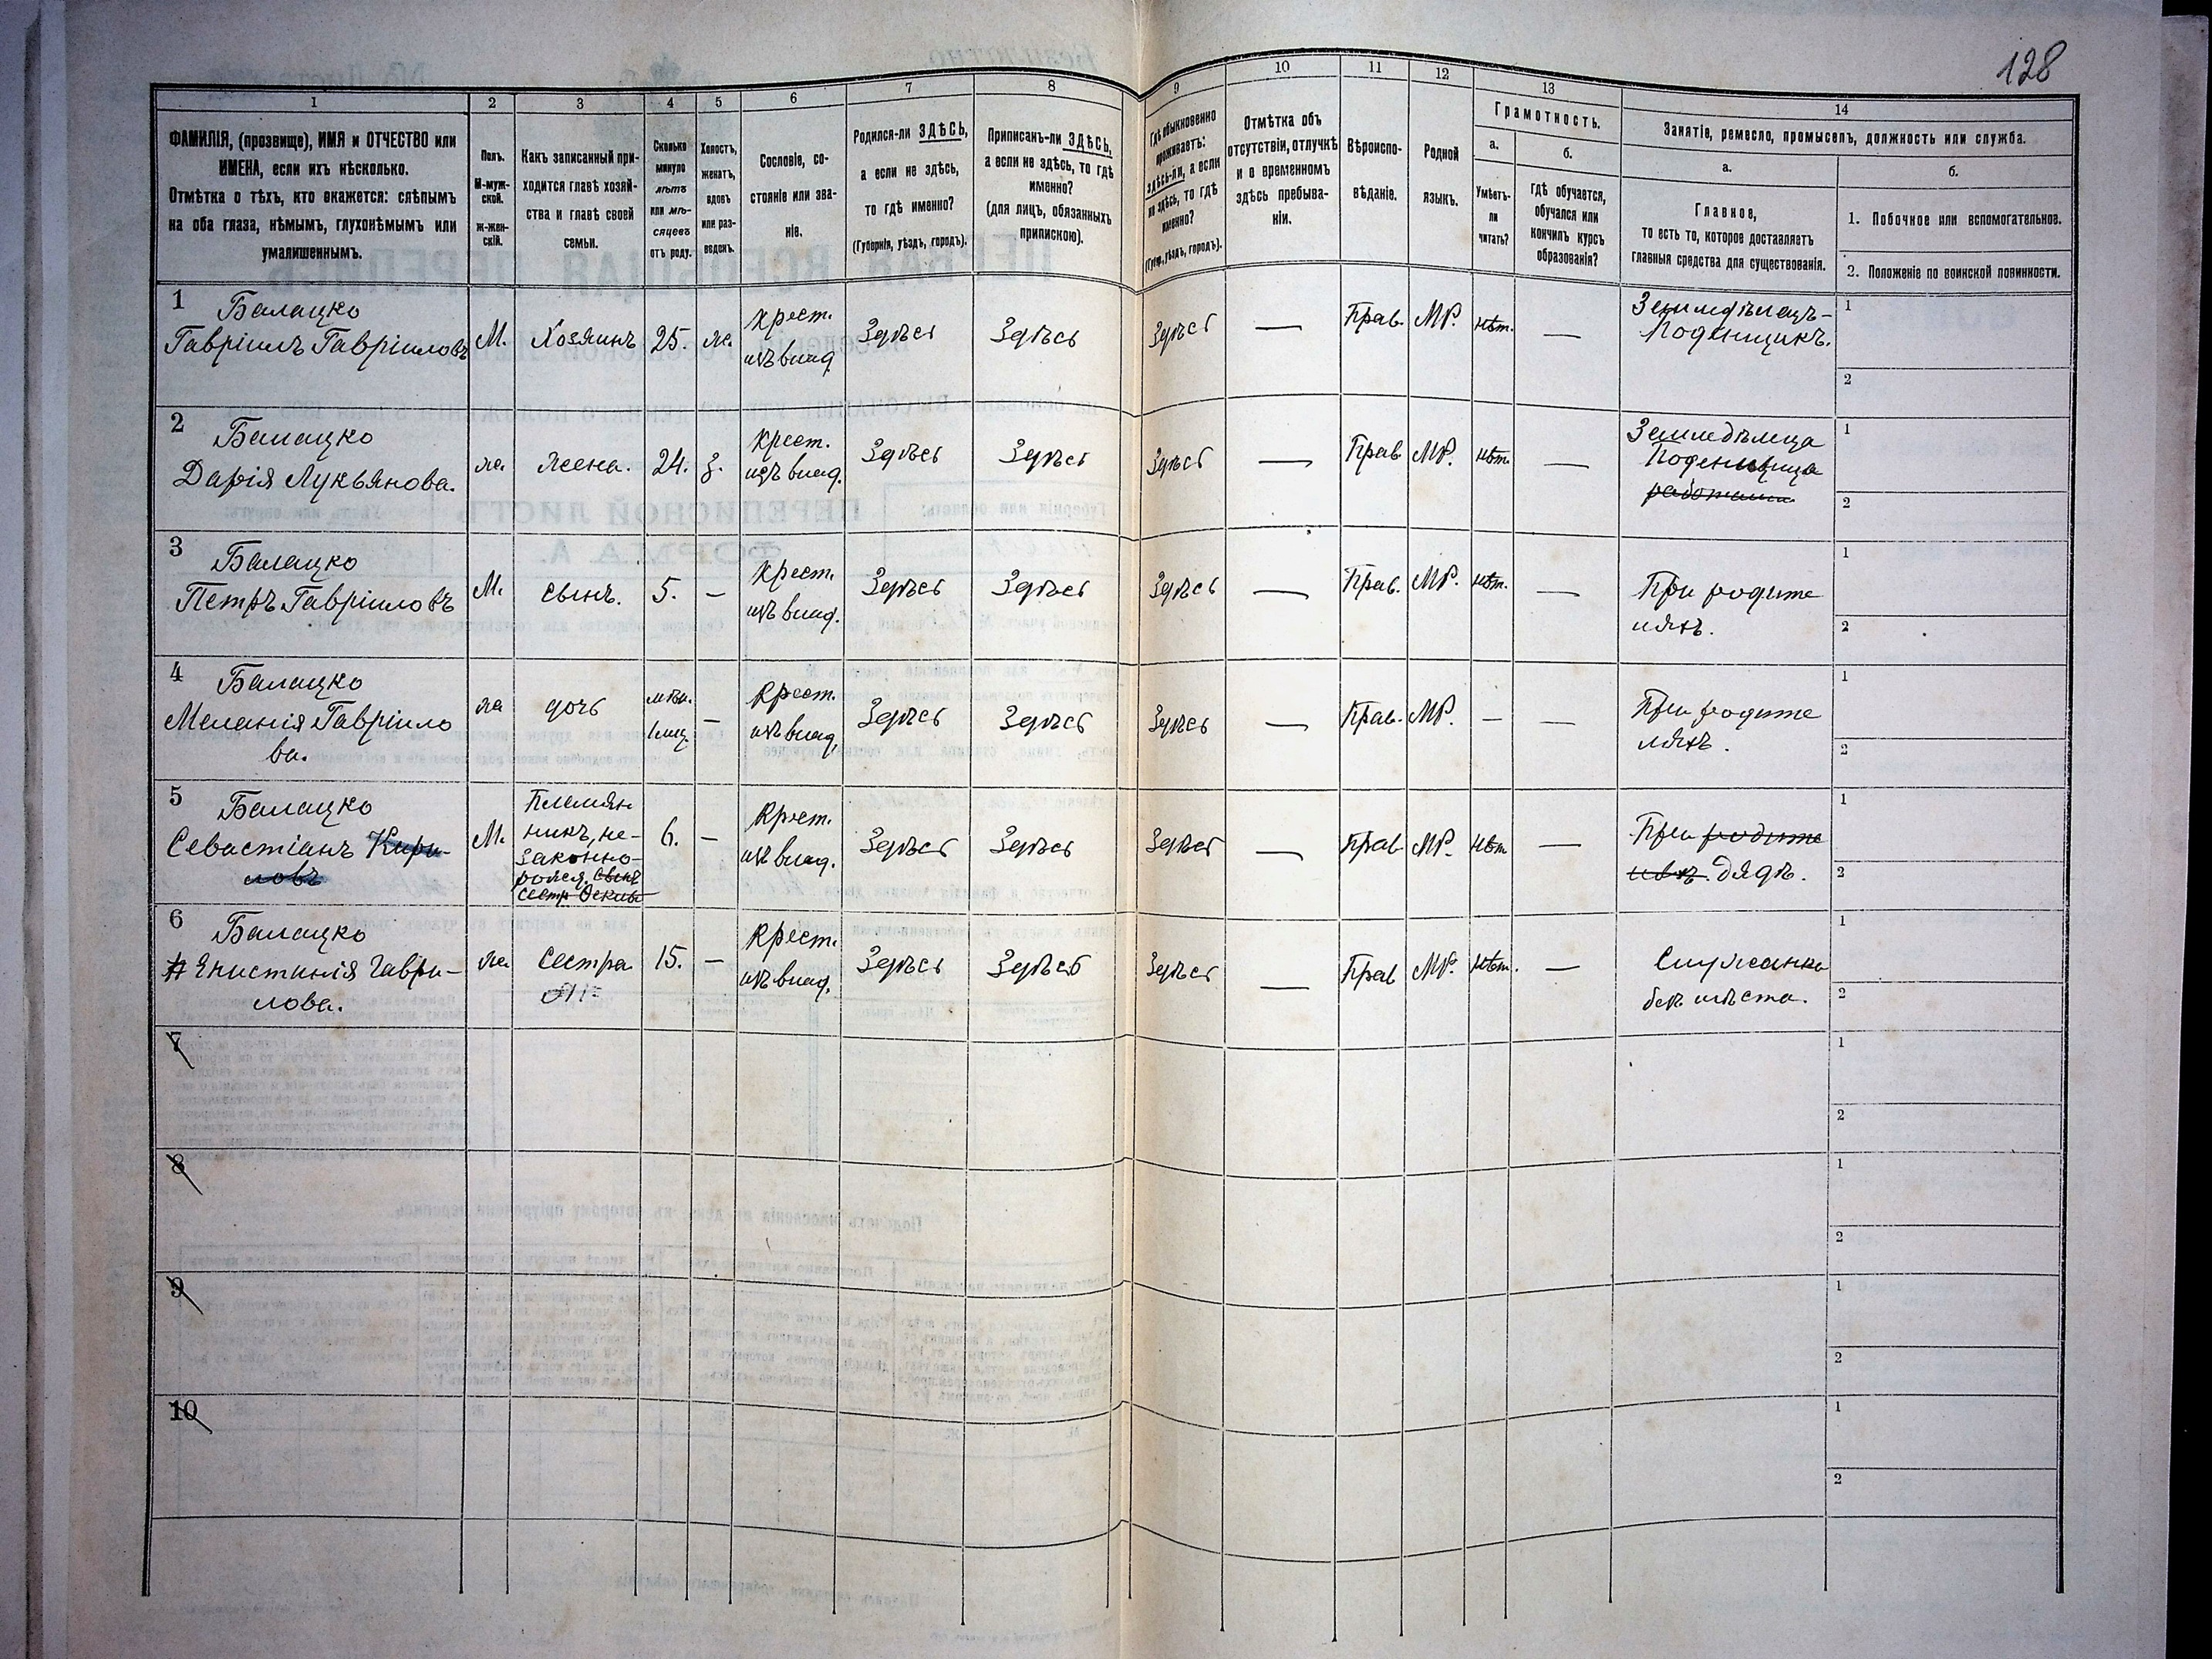 128
1
2
3
4
5
6
7
8
9
10
11
12
13
14
ФАМИЛІЯ, (прозвище), ИМЯ и ОТЧЕСТВО или
ИМЕНА, если ихъ нѣсколько.
Отмѣтка о тѣхъ, кто окажется: слѣпымъ
на оба глаза, нѣмымъ, глухонѣмымъ или
умалишеннымъ.
Полъ.
М-муж-
ской.
ж-жен-
скій.
Какъ записанный при-
ходится главѣ хозяй-
ства и главѣ своей
семьи.
Сколько
минуло
лѣтъ
или мѣ-
сяцевъ
отъ роду.
Холостъ,
женатъ,
вдовъ
или раз-
веденъ.
Сословіе, со-
стояніе или зва-
ніе.
Родился-ли ЗДѢСЬ,
а если не здѣсь,
то гдѣ именно?
(Губернія, уѣздъ, городъ).
Приписанъ-ли ЗДѢСЬ,
а если не здѣсь, то гдѣ
именно?
(для лицъ, обязанныхъ
припискою).
Гдѣ обыкновенно
проживаетъ:
здѣсь-ли, а если
не здѣсь, то гдѣ
именно?
(Губер., уѣздъ, городъ).
Отмѣтка объ
отсутствіи, отлучкѣ
и о временномъ
здѣсь пребыва-
ніи.
Вѣроиспо-
вѣданіе.
Родной
языкъ.
Грамотность.
а.
Умѣетъ-
ли
читать?
б.
гдѣ обучается,
обучался или
кончилъ курсъ
образованія?
Занятіе, ремесло, промыселъ, должность или служба.
а.
Главное,
то есть то, которое доставляетъ
главныя средства для существованія.
б.
1. Побочное или вспомогательное.
2. Положеніе по воинской повинности.
1
Балацко
Гавріилъ Гавріиловъ
М. Хозяинъ 25. ж.
Крест.
изъ влад.
Здѣсь Здѣсь Здѣсь — Прав. МР. нѣт. —
Земледѣлецъ-
Поденщикъ.
1
2
2
Балацко
Дарія Лукьянова.
ж. жена. 24. з.
Крест.
изъ влад.
Здѣсь Здѣсь Здѣсь — Прав МР. нѣт. —
Земледѣлица
Поденьщица
работаетъ
1
2
3
Балацко
Петръ Гавріиловъ
М. сынъ. 5. —
Крест.
изъ влад.
Здѣсь Здѣсь Здѣсь — Прав. МР. нѣт. —
При родите
ляхъ.
1
2
4
Балацко
Меланія Гавріило
ва.
ж дочь
1 мѣс. —
Крест.
изъ влад.
Здѣсь Здѣсь Здѣсь — Прав. МР. — —
При родите
ляхъ.
1
2
5
Балацко
Севастіанъ Кири-
ловъ
М.
Племян
никъ, не-
законно-
рожд. сынъ
сестр.
6. —
Крест.
изъ влад.
Здѣсь Здѣсь Здѣсь — Прав МР. нѣт —
При родите
ляхъ. дядѣ.
1
2
6
Балацко
Епистинія Гаври-
лова.
ж. Сестра 15. —
Крест.
изъ влад.
Здѣсь Здѣсь Здѣсь — Прав МР. нѣт. —
Служанка
безъ мѣста.
1
2
7
1
2
8
1
2
9
1
2
10
1
2